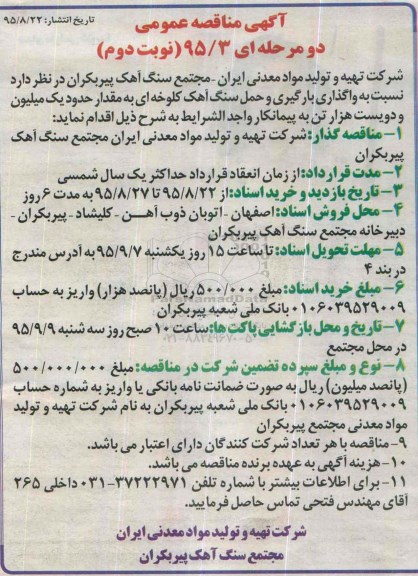 تاریخ انتشار: ۹۵/۸/۲۲
آگهی مناقصه عمومی
دو مرحله ای ۹۵/۳ (نوبت دوم)
شرکت تهیه و تولید مواد معدنی ایران - مجتمع سنگ آهک پیربکران در نظر دارد
نسبت به واگذاری بارگیری و حمل سنگ آهک کلوخه ای به مقدار حدود یک میلیون
و دویست هزار تن به پیمانکار واجد الشرایط به شرح ذیل اقدام نماید:
۱- مناقصه گذار: شرکت تهیه و تولید مواد معدنی ایران مجتمع سنگ آهک
پیربکران
۲- مدت قرارداد: از زمان انعقاد قرارداد حداکثر یک سال شمسی
۳- تاریخ بازدید و خرید اسناد: از ۹۵/۸/۲۲ تا ۹۵/۸/۲۷ به مدت ۶ روز
۴- محل فروش اسناد: اصفهان - اتوبان ذوب آهن - کلیشاد - پیربکران -
دبیرخانه مجتمع سنگ آهک پیربکران
۵- مهلت تحویل اسناد: تا ساعت ۱۵ روز یکشنبه ۹۵/۹/۷ به آدرس مندرج
در بند ۴
۶- مبلغ خرید اسناد: مبلغ ۵۰۰/۰۰۰ ریال (پانصد هزار) واریز به حساب
۰۱۰۶۰۳۹۵۲۹۰۰۹ بانک ملی شعبه پیربکران
۷- تاریخ و محل بازگشایی پاکت ها: ساعت ۱۰ صبح روز سه شنبه ۹۵/۹/۹
در محل مجتمع
۸- نوع و مبلغ سپرده تضمین شرکت در مناقصه: مبلغ ۵۰۰/۰۰۰/۰۰۰
(پانصد میلیون) ریال به صورت ضمانت نامه بانکی یا واریز به شماره حساب
۰۱۰۶۰۳۹۵۲۹۰۰۹ بانک ملی شعبه پیربکران به نام شرکت تهیه و تولید
مواد معدنی مجتمع پیربکران
۹- مناقصه با هر تعداد شرکت کنندگان دارای اعتبار می باشد.
۱۰- هزینه آگهی به عهده برنده مناقصه می باشد.
۱۱- برای اطلاعات بیشتر با شماره تلفن ۳۷۲۲۲۹۷۱-۰۳۱ داخلی ۲۶۵
آقای مهندس فتحی تماس حاصل فرمایید.
شرکت تهیه و تولید مواد معدنی ایران
مجتمع سنگ آهک پیربکران